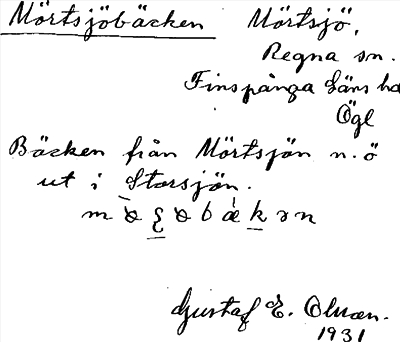 Mörtsjöbäcken Mörtsjö,
Regna sn.
Finspånga läns hd
Ögl
Bäcken från Mörtsjön n.ö
ut i Storsjön.
Gustaf E. Olsson.
1931